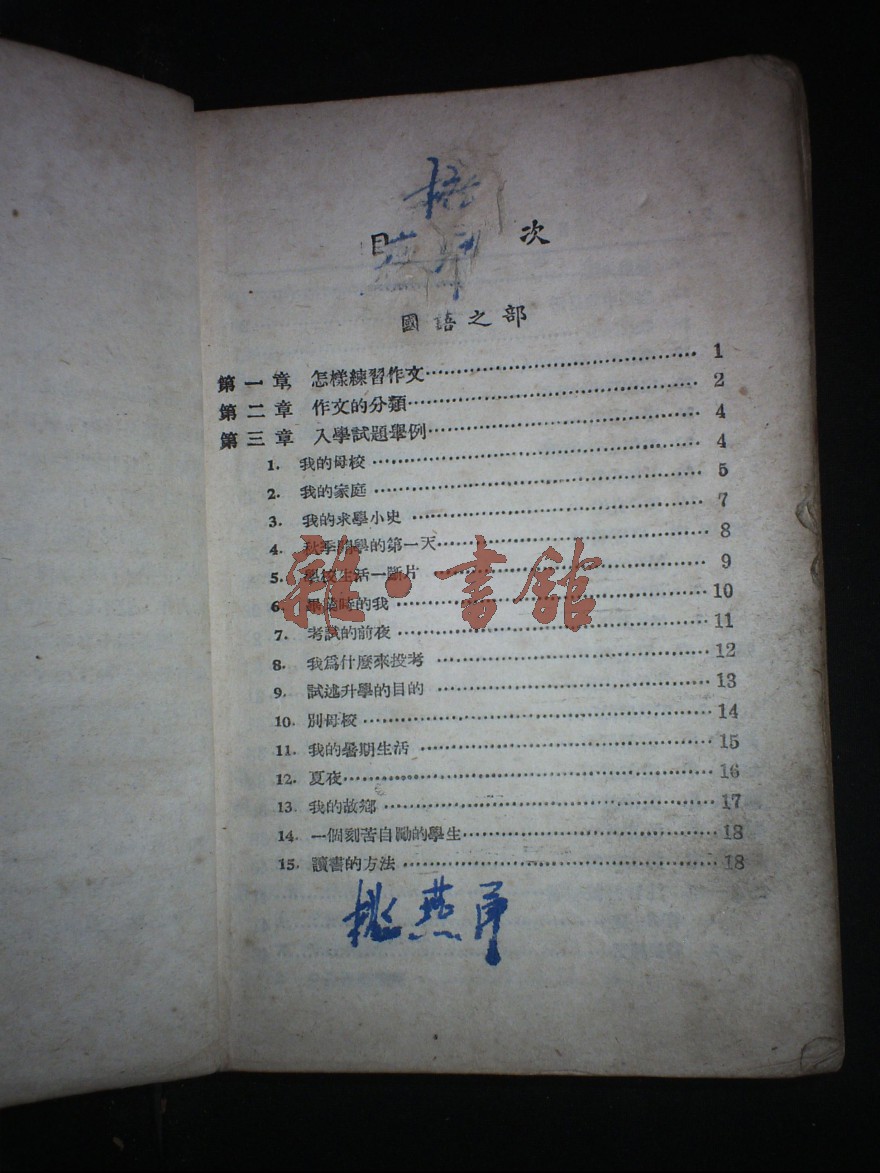 目 次
國語之部
第一章 怎樣練習作文……1
第二章 作文的分類……2
第三章 入學試題舉例……4
1. 我的母校……4
2. 我的家庭……5
3. 我的求學小史……7
4. 秋季開學的第一天……8
5. 學校生活一斷片……9
6. 畢業時的我……10
7. 考試的前夜……11
8. 我爲什麼來投考……12
9. 試述升學的目的……13
10. 別母校……14
11. 我的暑期生活……15
12. 夏夜……16
13. 我的故鄉……17
14. 一個刻苦自勵的學生……18
15. 讀書的方法……18
雜·書館
燕